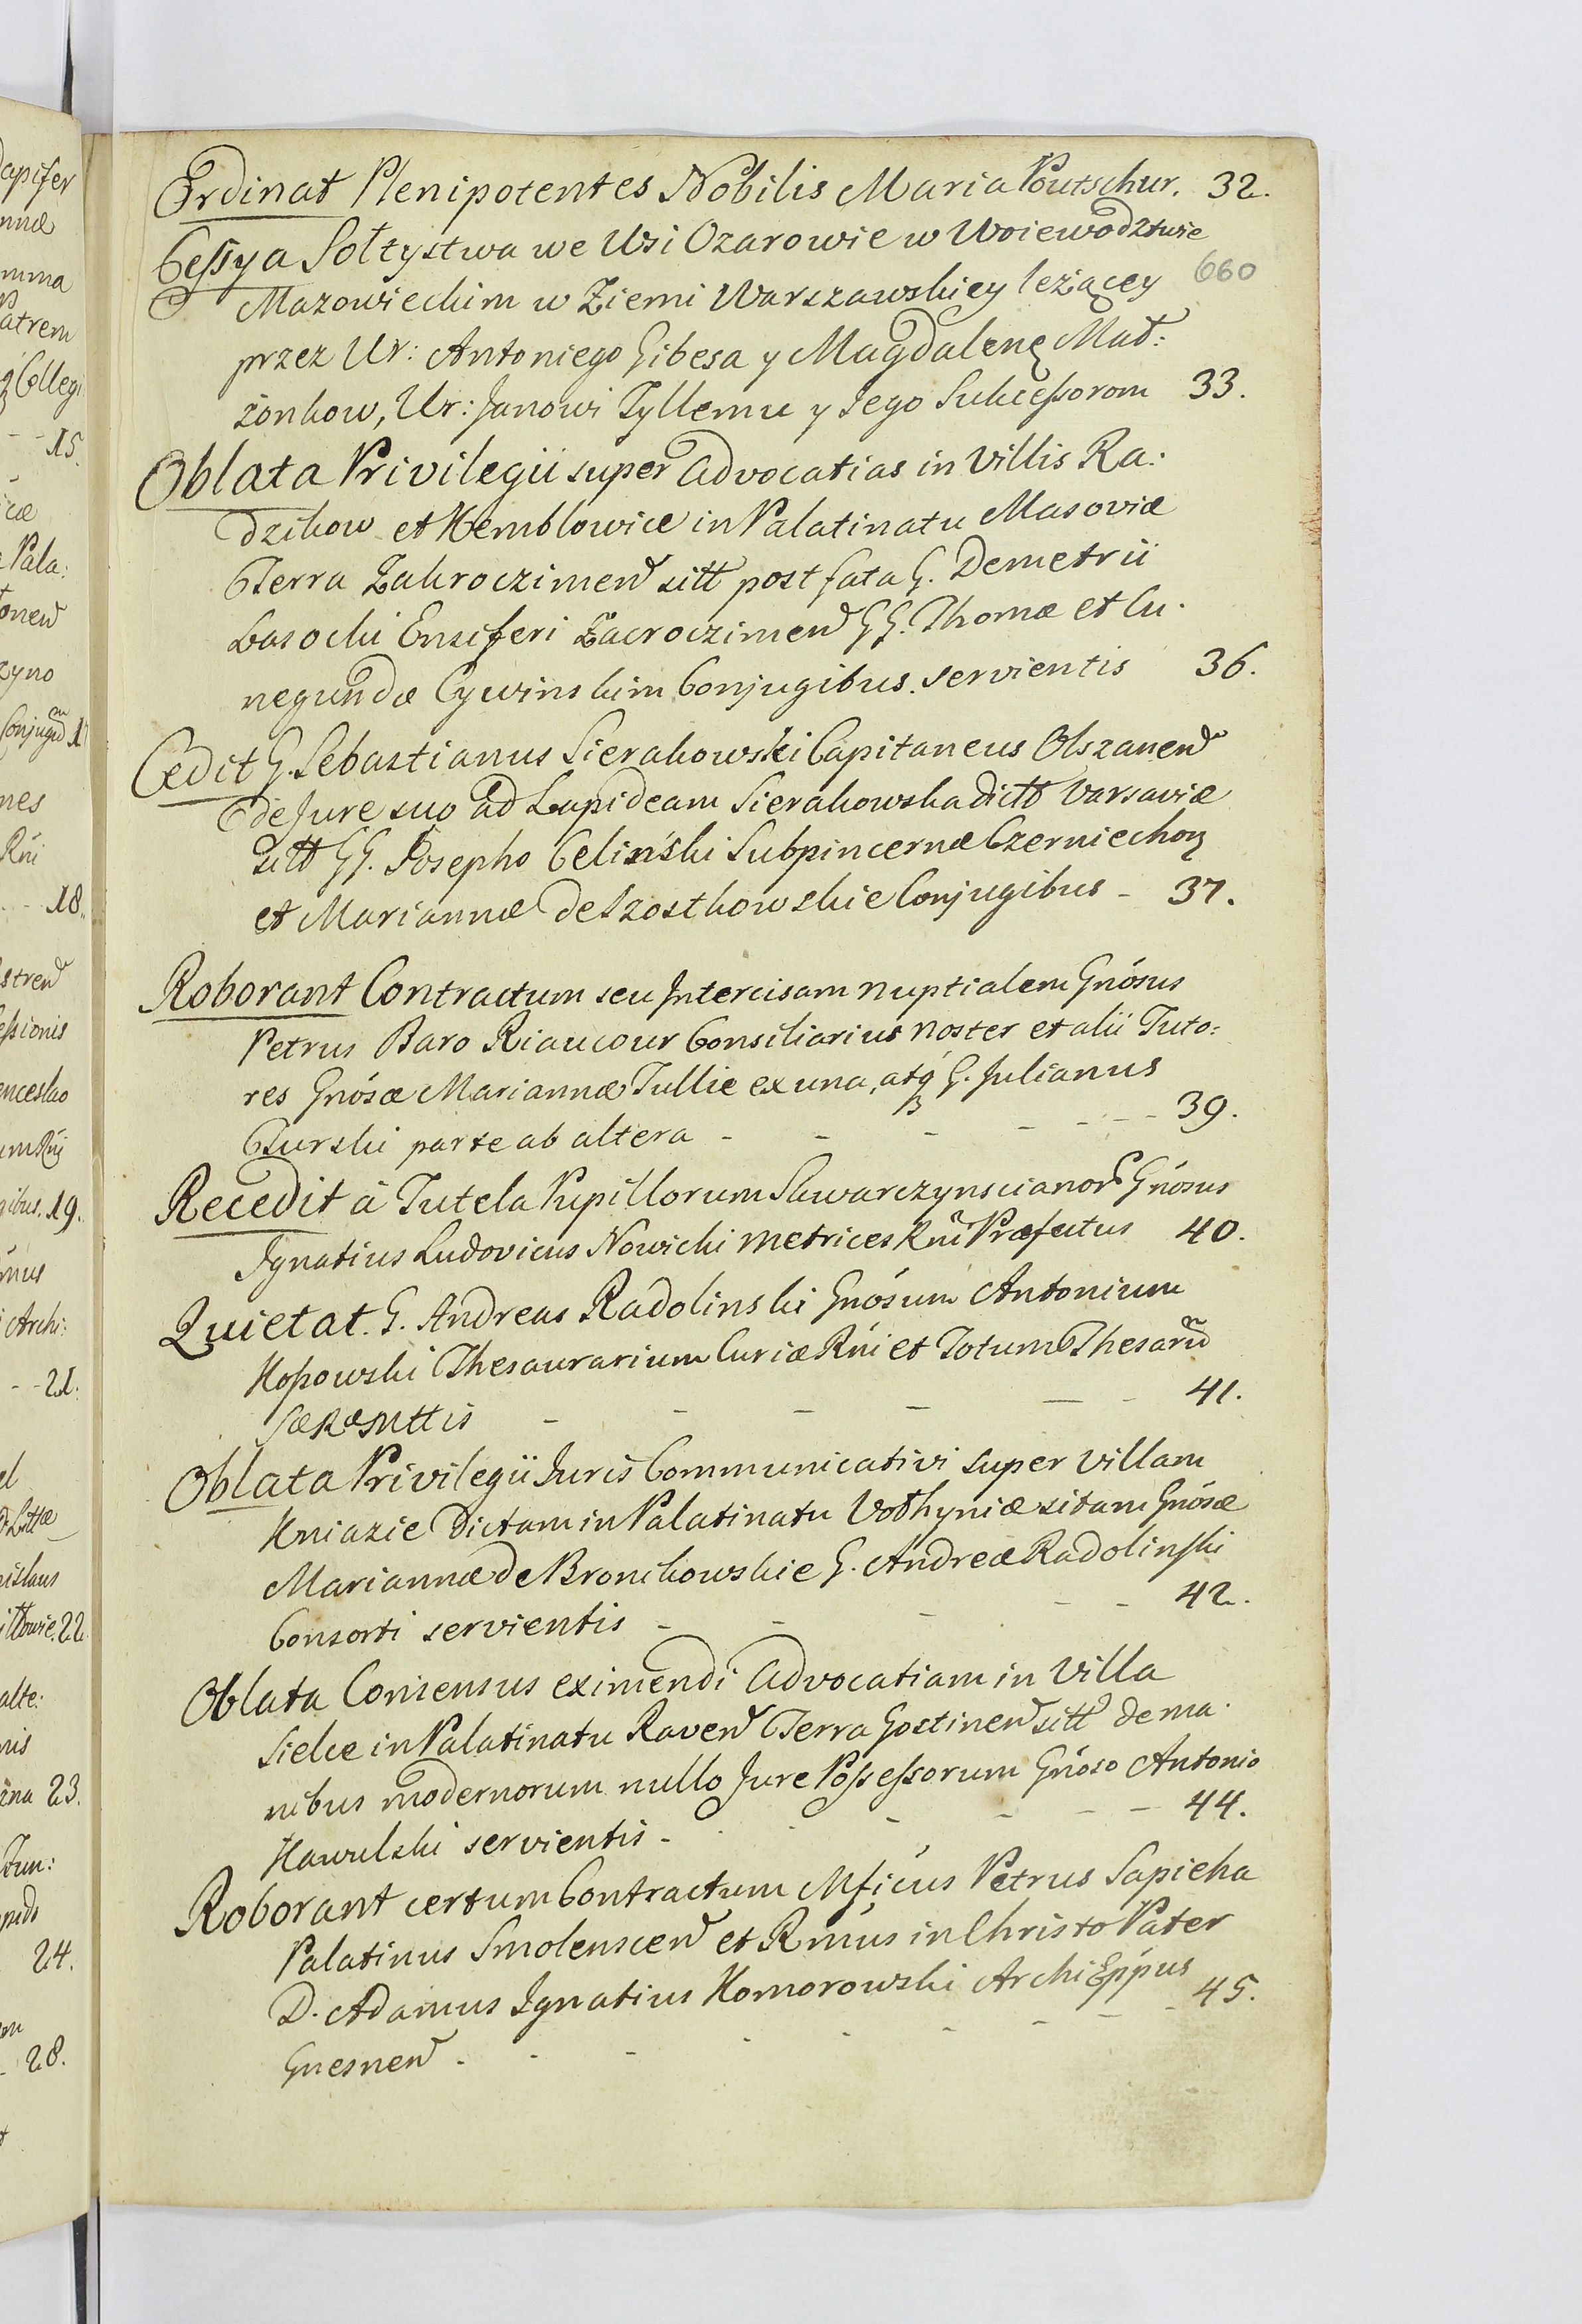 Ordinat Plenipotentes Nobilis Maria Poutschur. 32.
Cessya Sołtystwa we Wsi Ozarowie w Woiewodztwie
Mazowieckim w Ziemi Warszawskiey leżącey 660
przez Ur: Antoniego Gibesa y Magdalenę Mał:
żonkow, Ur: Janowi Tyllemu y Jego Sukcessorom 33.
Oblata Privilegii super Advocatias in Villis Ra:
dzikow et Kemblowice in Palatinatu Masoviæ
Terra Zakroczimen sitt post fata G. Demetrii
Lasocki Ensiferi Zacroczimen GG. Thomæ et Cu:
negundæ Cywinskim Conjugibus servientis 36.
Cedit G. Sebastianus Sierakowski Capitaneus Olszanen
de Jure suo ad Lapideam Sierakowska dictt Varsaviæ
sitt GG. Josepho Celiński Subpincernæ Czerniechoꝝ
et Mariannæ de Szostkowskie Conjugibus - 37.
Roborant Contractum seu Intercisam nuptialem Gnósus
Petrus Baro Riaucour Consiliarius noster et alii Tuto:
res Gnósæ Mariannæ Tullie ex una, atq́ꝫ G. Julianus
Turski parte ab altera - - - - - - - 39.
Recedit à Tutela Pupillorum Skwarczynscianor Gnósus
Ignatius Ludovicus Nowicki Metrices Rni Præfectus 40.
Quietat G. Andreas Radolinski Gnósum Antonium
Kossowski Thesaurarium Curiæ Rńi et Totum Thesarũ
SæRæMttis - - - - - - 41.
Oblata Privilegii Juris Communicativi super Villam
Kniazie Dictam in Palatinatu Vołhyniæ sitam Gnósæ
Mariannæ de Bronikowskie G. Andreæ Radolinski
Consorti servientis - - - - - 42.
Oblata Consensus eximendi Advocatiam in Villa
Sielce in Palatinatu Raven Terra Gostinen sitt de ma:
nibus modernorum nullo Jure Possessorum Gnóso Antonio
Kawulski servientis - - - - - - 44.
Roborant certum Contractum Mficus Petrus Sapieha
Palatinus Smolenscen et Rmús in Christo Pater
D. Adamus Ignatius Komorowski ArchiEppus
Gnesnen - - - - - - - - 45.